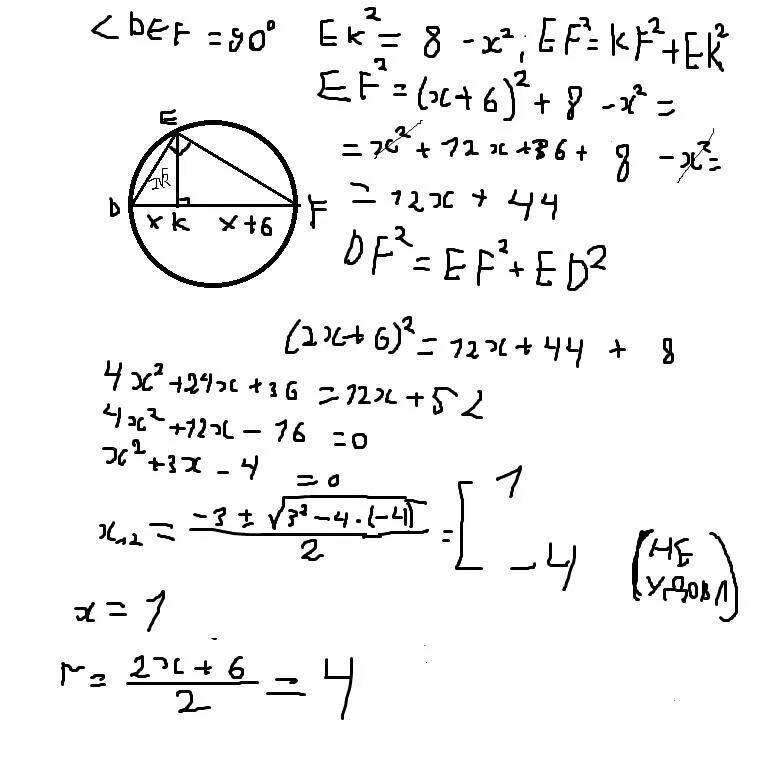 ∠DEF = 90°
EK² = 8 - x², EF² = KF² + EK²
EF² = (x+6)² + 8 - x² =
= x² + 12x + 36 + 8 - x² =
= 12x + 44
E
D
x K
x+6
F
DF² = EF² + ED²
(2x+6)² = 12x + 44 + 8
4x² + 24x + 36 = 12x + 52
4x² + 12x - 16 = 0
x² + 3x - 4 = 0
x₁,₂ = (-3 ± √(3² - 4·(-4)))/2 = [1
-4 (НЕ УДОВЛ)
x = 1
r = (2x+6)/2 = 4